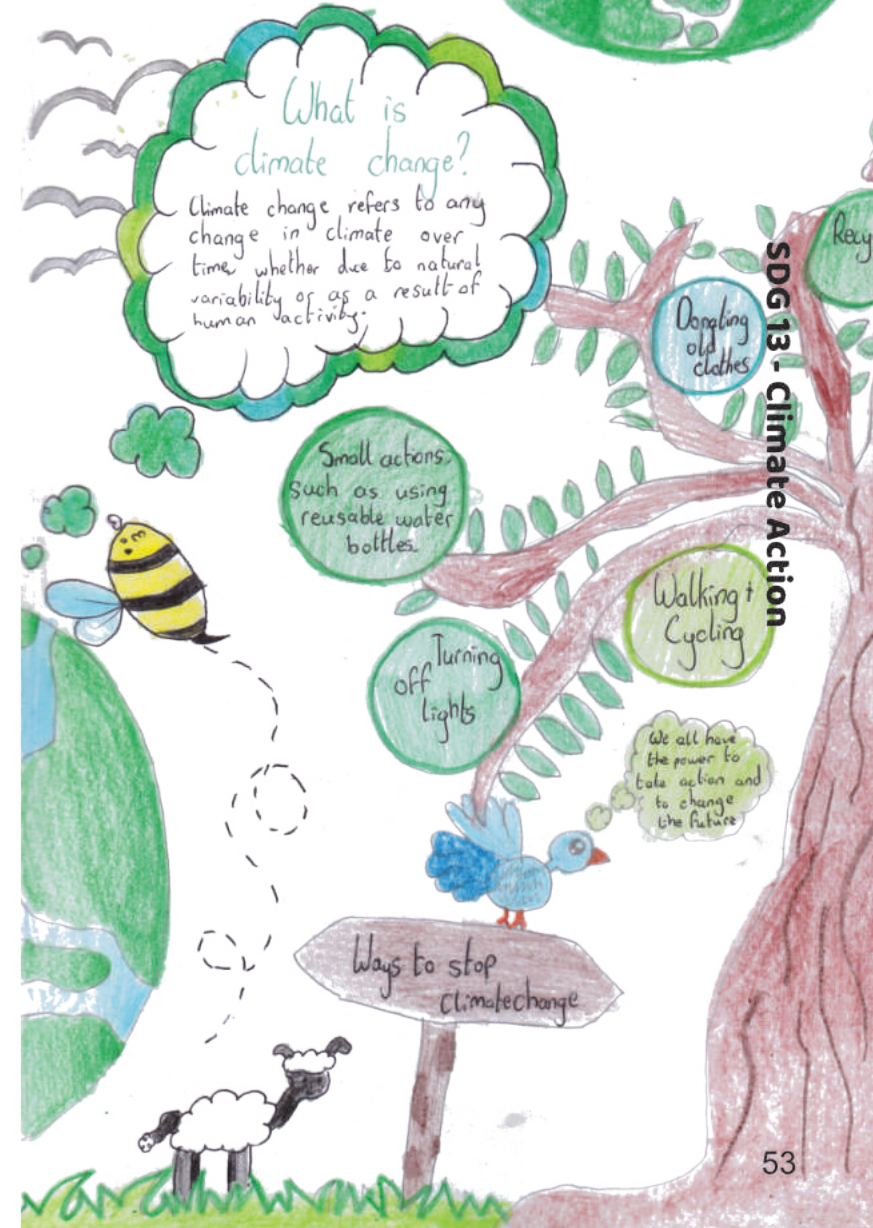 What is
climate change?
Climate change refers to any
change in climate over
time, whether due to natural
variability or as a result of
human activity.
Recy
Donating
old
clothes
SDG 13 - Climate Action
Small actions,
such as using
reusable water
bottles.
Walking +
Cycling
Turning
off
lights
We all have
the power to
take action and
to change
the future
Ways to stop
Climate change
53